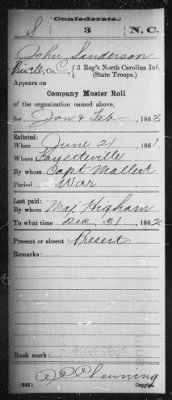 Confederate.
S 3 N.C.
John Sanderson
Private, Co. C, 3 Reg't North Carolina Inf.
(State Troops.)
Appears on
Company Muster Roll
of the organization named above,
for Jan & Feb, 1863
Enlisted:
When June 21, 1861.
Where Fayetteville
By whom Capt Mallett
Period War
Last paid:
By whom Maj. Higham
To what time Dec 31, 1862
Present or absent: Present
Remarks:
Book mark:
Copyist.